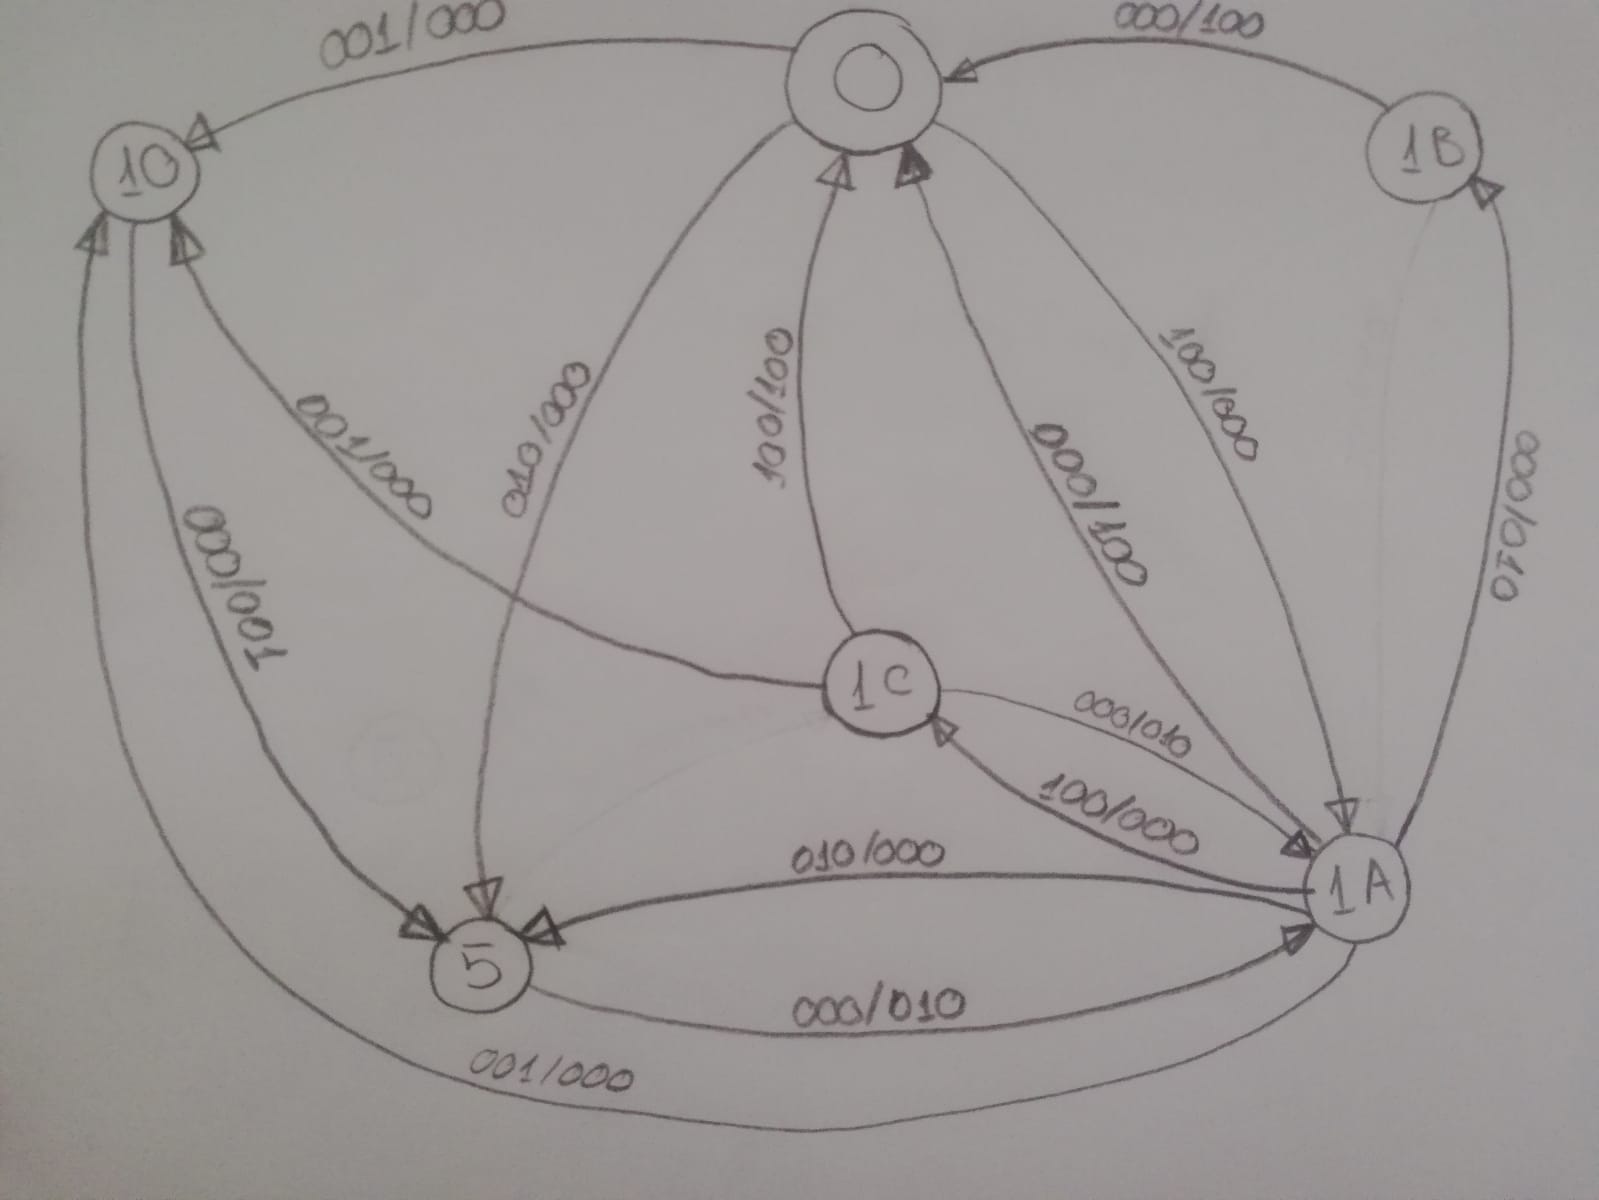 001/000
000/100
0
10
1B
010/000
100/100
000/100
100/000
001/000
000/001
000/010
1C
000/010
100/000
010/000
1A
5
000/010
001/000